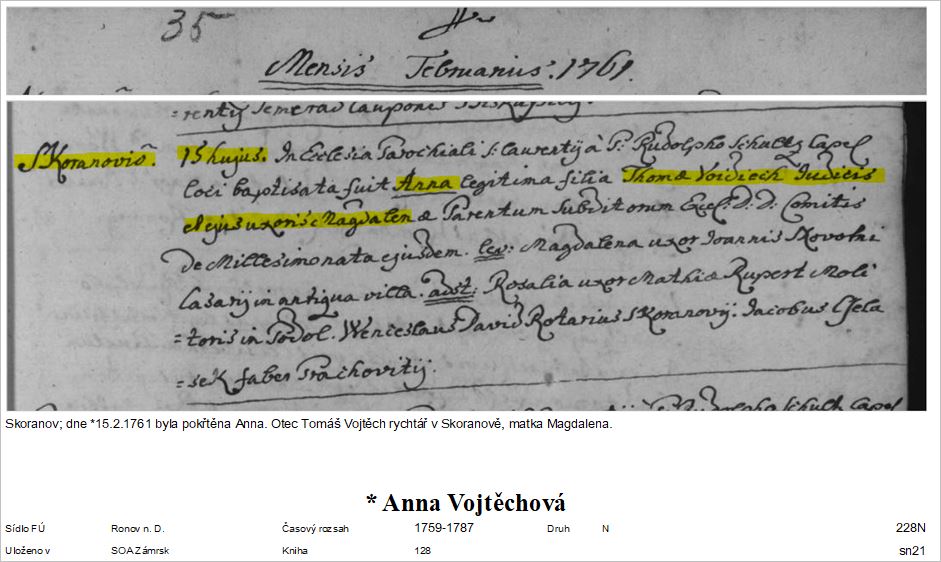 35
Mensis Februarius. 1761.
=rentij Semerad Cauponis
SKoranovio. 15 hujus. In Ecclesia Parochiali S: Laurentij à P: Rudolpho Schultz Capel
loci baptisata fuit Anna legitima filia Thomæ Voidiech Judicis
et ejus uxoris Magdalenæ Parentum Subditorum Excel: D: D: Comitis
De Millesimo nata ejusdem. lev: Magdalena uxor Joannis SKovotni
Casarij in antiqua villa. adst: Rosalia uxor Mathiæ Rupert Moli
=toris in Podol. Wenceslaus David Rotarius SKoranovij. Jacobus
=seK faber Prachovitij.
Schultz Capel
Skoranov; dne *15.2.1761 byla pokřtěna Anna. Otec Tomáš Vojtěch rychtář v Skoranově, matka Magdalena.
* Anna Vojtěchová
Sídlo FÚ Ronov n. D. Časový rozsah 1759-1787 Druh N 228N
Uloženo v SOA Zámrsk Kniha 128 sn21